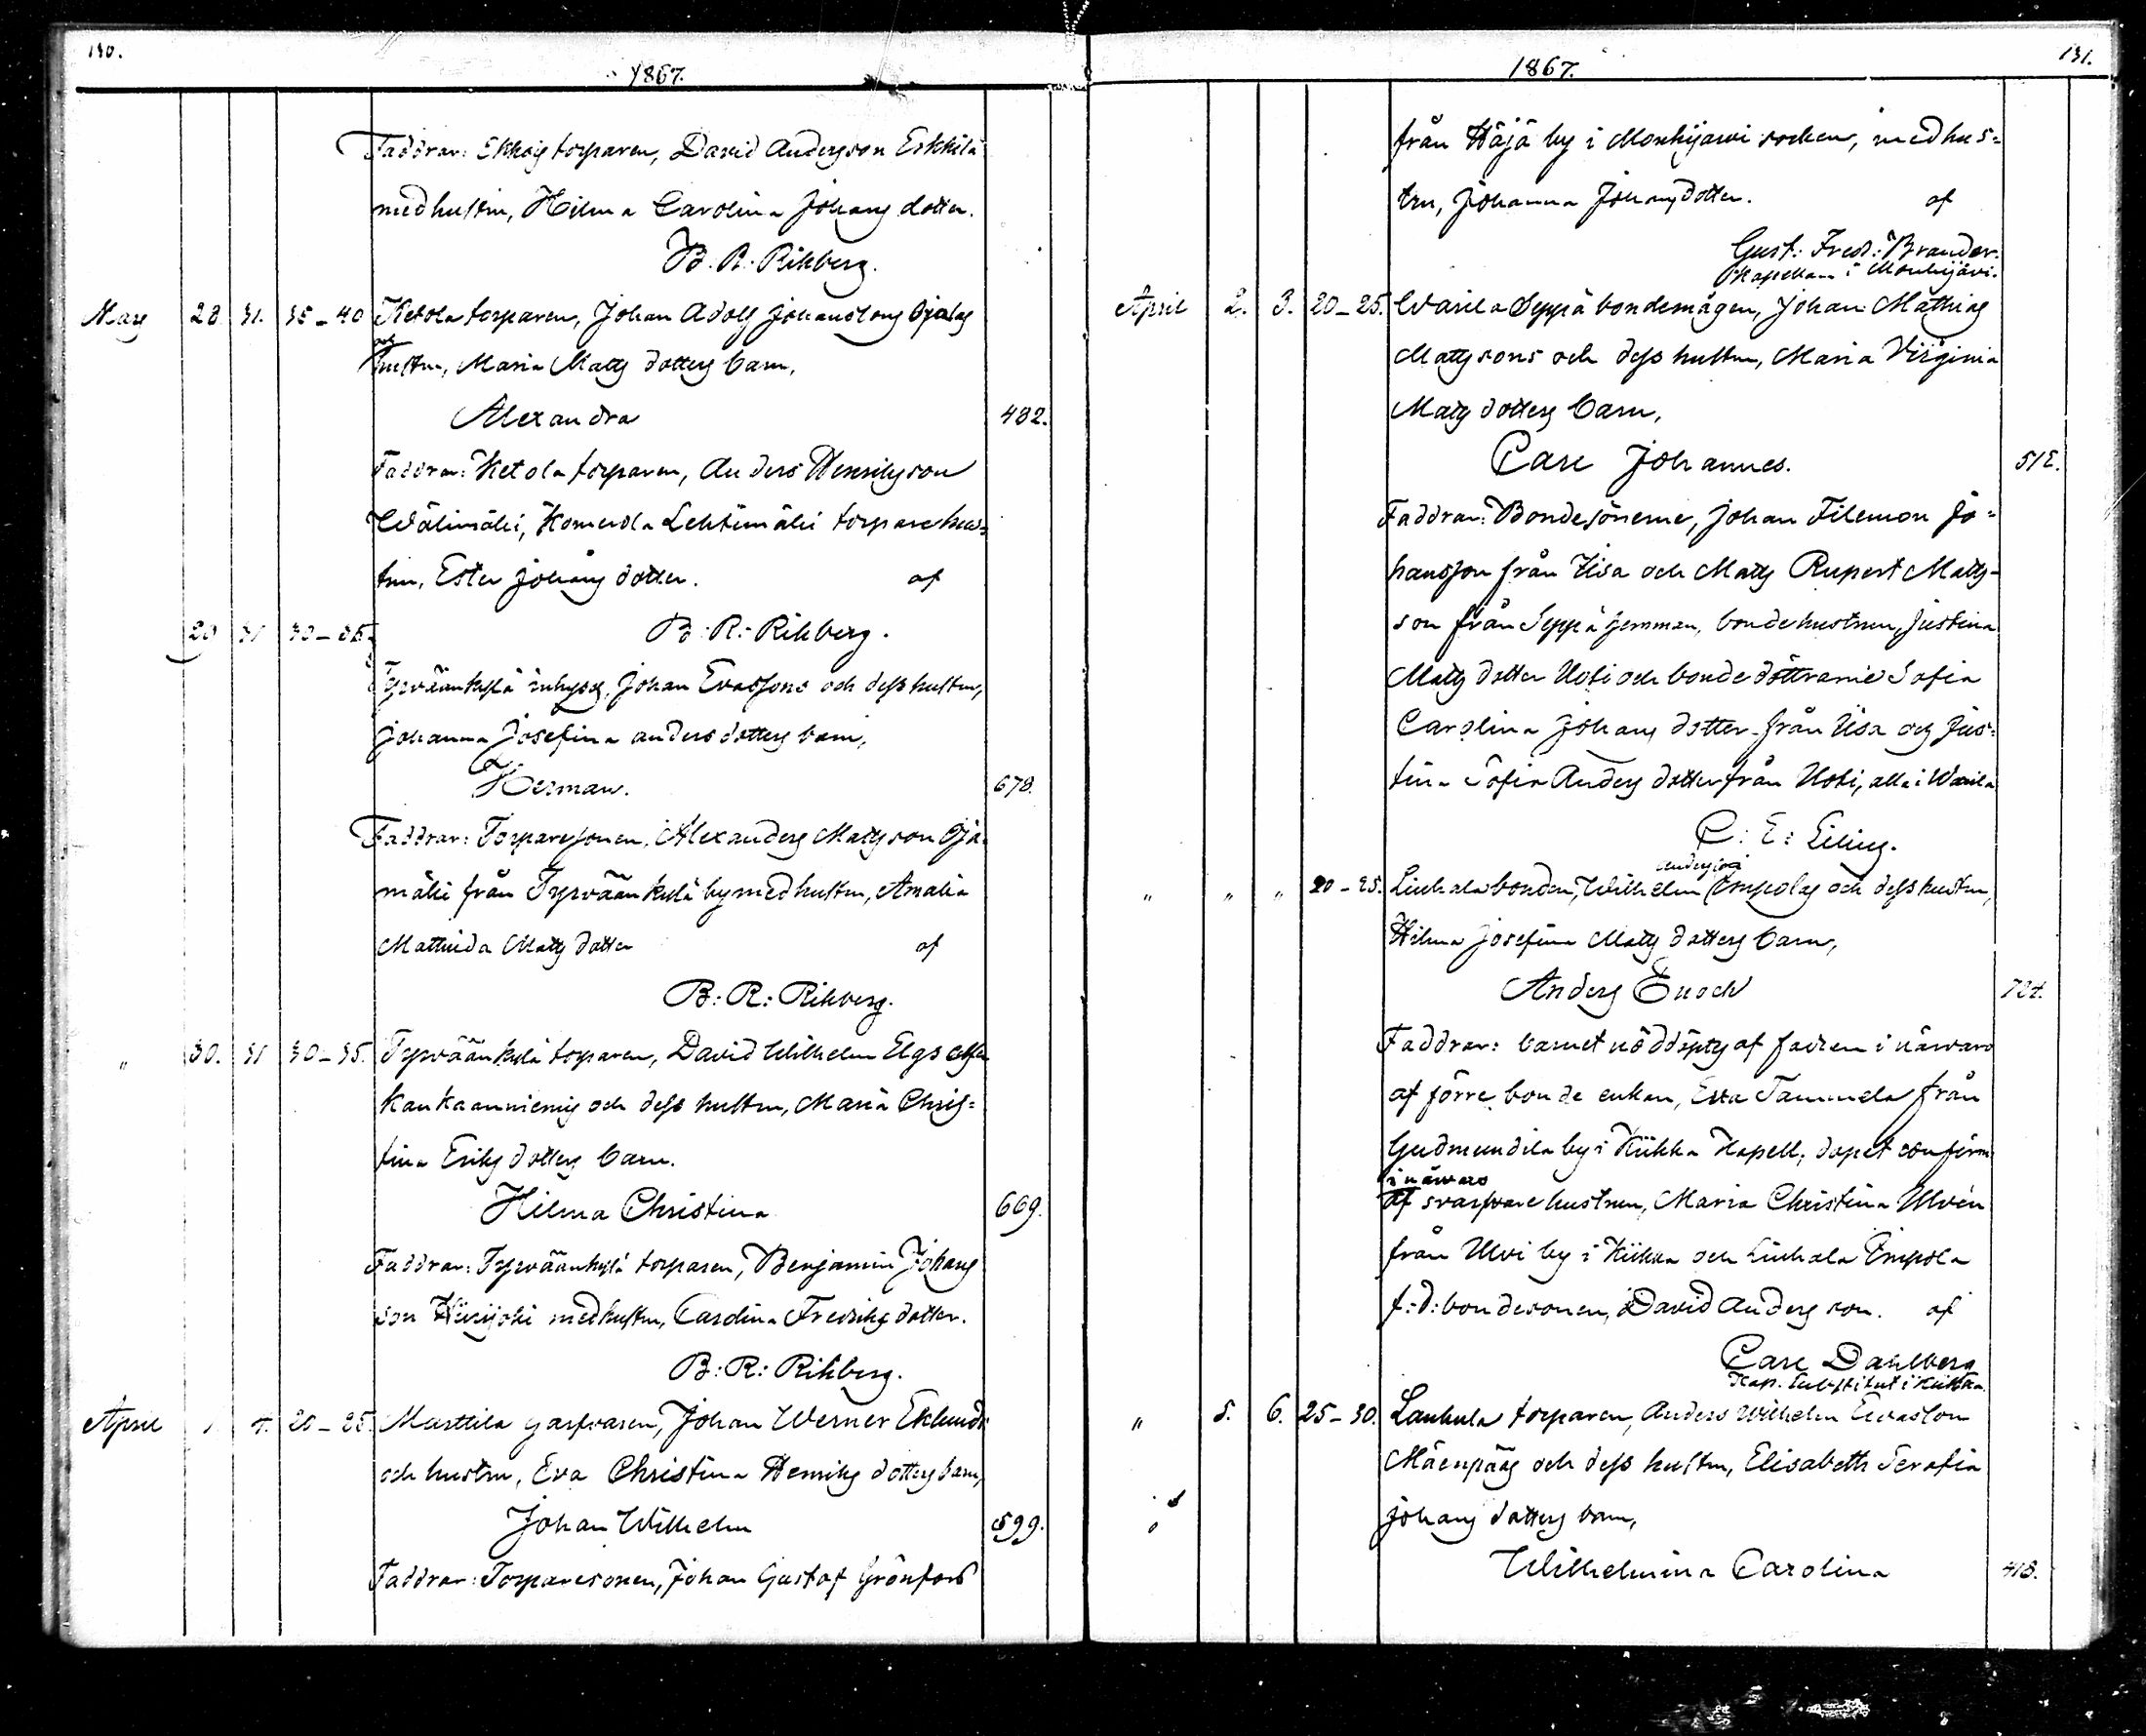 130.
1867.
Faddrar: Ekkois torparen, David Andersson Eskkilä
med hustru, Hilma Carolina Johans dotter.
B. R. Rihberg.
Mars 28 31. 35-40 Ketola torparen, Johan Adolf Johanssons Ojalas
och hustru, Maria Matts dotters barn,
Alexandra 482.
Faddrar: Ketola torparen, Anders Henriksson
Wälimäki, Komerola Lehtimäki torpare hus-
trun, Ester Johans dotter. af
29 31 30-35. B: R: Rihberg.
Tyrväänkylä inhyses, Johan Evassons och dess hustru,
Johanna Josefina anders dotters barn,
Herman. 678.
Faddrar: Torparesonen, Alexanders Mattsson Oja-
mäki från Tyrväänkylä by med hustru, Amalia
Mathilda Matts dotter af
B: R: Rihberg.
" 30. 31 30-35. Tyrväänkylä torparen, David Wilhelm Elgs
kankaanniemis och dess hustru, Maria Chris-
tina Eriks dotters barn.
Hilma Christina 669.
Faddrar: Tyrväänkylä torparen, Benjamin Johans
son med hustru, Carolina Fredriks dotter.
B: R: Rihberg.
April 1. 7. 20-25. Marttila garfvaren, Johan Werner Eklunds
och hustru, Eva Christina Henriks dotters barn,
Johan Wilhelm 599.
Faddrar: Torparesonen, Johan Gustaf Grönfors
131.
1867.
från Häjä by i Mouhijärvi socken, med hus-
tru, Johanna Johans dotter. af
Gust: Fred: Brander.
Kapellan i Mouhijärvi.
April 2. 3. 20-25. Warila Seppä bondemågen, Johan Mathias
Mattssons och dess hustru, Maria Virginia
Matts dotters barn,
Carl Johannes. 512.
Faddrar: Bondesönerne, Johan Filemon Jo-
hansson från Iisa och Matts Rupert Matts-
son från Seppä hemman, bondehustrun, Justina
Matts dotter Uoti och bonde döttrarne Sofia
Carolina Johans dotter från Iisa och Jus-
tina Sofia Anders dotter från Uoti, alla i Warila
C: E: Lilius.
" " " 20-25. Liuhala bonden, Wilhelm Anderssons Empolas och dess hustru,
Hilma Josefina Matts dotters barn,
Anders Enoch 724.
Faddrar: barnet nöddöpts af fadren i närvaro
af förre bonde enkan, Eva Tammela från
Gudmundila by i Kiikka Kapell, dopet confirm
i närvaro
af svarfvare hustrun, Maria Christina Ulvén
från Ulvi by i Kiikka och Liuhala Empola
f: d: bondesonen, David Anders son. af
Carl Dahlberg
Kap. Substitut i Kiikka.
" 5. 6. 25-30. Laukula torparen, Anders Wilhelm Evasson
Mäenpääs och dess hustru, Elisabeth Serafia
Johans dotters barn,
Wilhelmina Carolina 418.